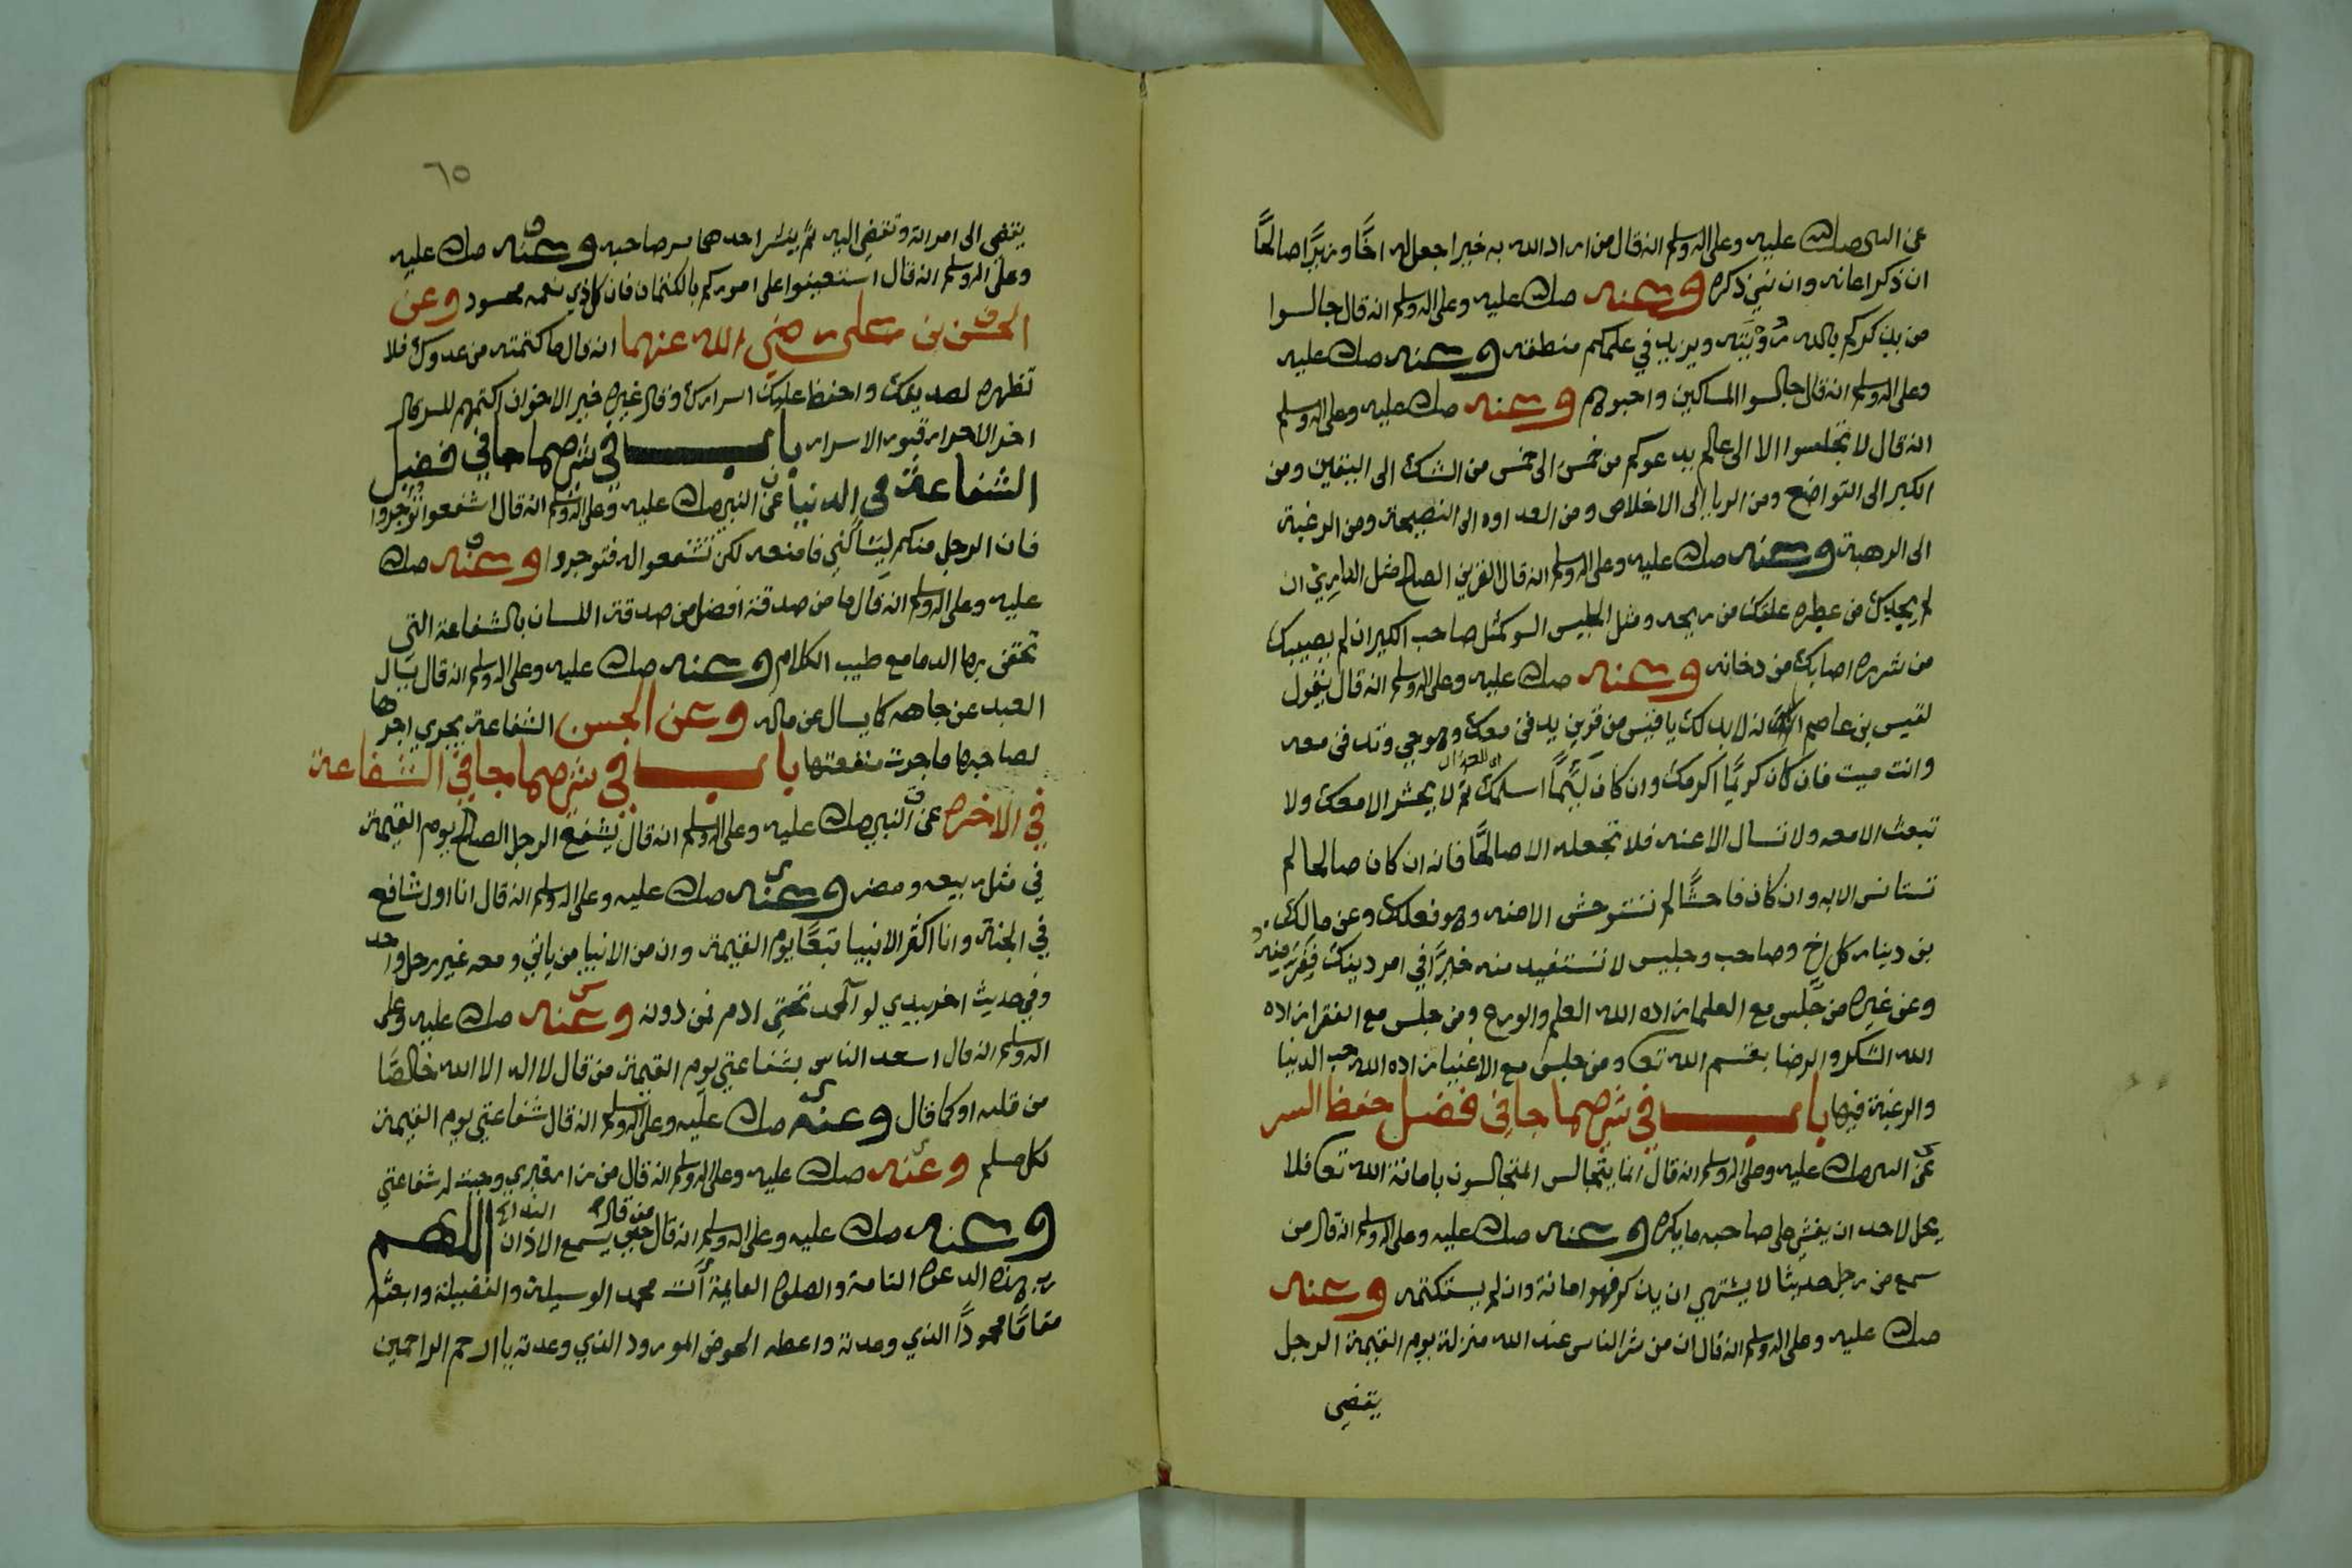 عن النبي صلى الله عليه وعلى اله وسلم انه قال من اراد الله به خيرا جعل له اخًا وزيرًا صالحًا
ان ذكر اعانه وان نسي ذكره وعنه صلى الله عليه وعلى اله وسلم انه قال جالسوا
من يذكركم بالله رؤيته ويزيد في علمكم منطقه وعنه صلى الله عليه
وعلى اله وسلم انه قال جالسوا المساكين واحبوهم وعنه صلى الله عليه وعلى اله وسلم
انه قال لا تجلسوا الا الى عالم يدعوكم من خمس الى خمس من الشك الى اليقين ومن
الكبر الى التواضع ومن الريا الى الاخلاص ومن العداوه الى النصيحة ومن الرغبة
الى الرهبة وعنه صلى الله عليه وعلى اله وسلم انه قال القرين الصالح مثل الداري ان
لم يجديك من عطره علقك من ريحه ومثل الجليس السو كمثل صاحب الكير ان لم يصيبك
من شرره اصابك من دخانه وعنه صلى الله عليه وعلى اله وسلم انه قال يقول
لقيس بن عاصم انه لا بد لك يا قيس من قرين يدفن معك وهو حي وتدفن معه
وانت ميت فان كان كريمًا اكرمك وان كان لئيمًا اسلمك ثم لا يحشر الا معك ولا
تبعث الا معه ولا تسال الا عنه فلا تجعله الا صالحًا فانه ان كان صالحا لم
تستانس الا به وان كان فاحشًا لم تستوحش الا منه وهو فعلك وعن مالك
بن دينار كل اخ وصاحب وجليس لا تستفيد منه خيرًا في امر دينك ففر منه
وعن غيره من جلس مع العلما زاده الله العلم والورع ومن جلس مع الفقرا زاده
الله الشكر والرضا بقسم الله تعا ومن جلس مع الاغنيا زاده الله حب الدنيا
والرغبة فيها باب في شرح ما جا في فضل حفظ السر
عن النبي صلى الله عليه وعلى اله وسلم انه قال انما يتجالس المتجالسون بامانة الله تعا فلا
يحل لاحد ان يفشي على صاحبه ما يكره وعنه صلى الله عليه وعلى اله وسلم انه قال من
سمع من رجل حديثا لا يشتهي ان يذكر فهو امانة وان لم يستكتمه وعنه
صلى الله عليه وعلى اله وسلم انه قال ان من شر الناس عند الله منزلة يوم القيمة الرجل
يفضي
٦٥
يفضي الى امراته وتفضي اليه ثم ينشر احدهما سر صاحبه وعنه صلى الله عليه
وعلى اله وسلم انه قال استعينوا على اموركم بالكتمان فان كل ذي نعمه محسود وعن
الحسن بن علي رضي الله عنهما انه قال ما كتمته من عدوك فلا
تظهره لصديقك واحفظ عليك اسرارك وقال غيره خير الاخوان اكتمهم للسر قال
اخر الاحرار قبور الاسرار باب في شرح ما جا في فضل
الشفاعة في الدنيا عن النبي صلى الله عليه وعلى اله وسلم انه قال اشفعوا تؤجروا
فان الرجل منكم ليسألني فامنعه لكن تشفعوا له فتوجروا وعنه صلى الله
عليه وعلى اله وسلم انه قال ما من صدقة افضل من صدقة اللسان بالشفاعة التي
تحقن بها الدما مع طيب الكلام وعنه صلى الله عليه وعلى اله وسلم انه قال يسال
العبد عن جاهه كما يسال عن ماله وعن الحسن الشفاعة يجري اجرها
لصاحبها ما جرت منفعتها باب في شرح ما جا في الشفاعة
في الاخره عن النبي صلى الله عليه وعلى اله وسلم انه قال يشفع الرجل الصالح يوم القيمة
في مثل ربيعه ومضر وعنه صلى الله عليه وعلى اله وسلم انه قال انا اول شافع
في الجنة وانا اكثر الانبيا تبعًا يوم القيمة وان من الانبيا من ياتي ومعه غير رجل واحد
وفي حديث اخر بيدي لوا الحمد تحتي ادم فمن دونه وعنه صلى الله عليه وعلى
اله وسلم انه قال اسعد الناس بشفاعتي يوم القيمة من قال لا اله الا الله خالصًا
من قلبه او كما قال وعنه صلى الله عليه وعلى اله وسلم انه قال شفاعتي يوم القيمة
لكل مسلم وعنه صلى الله عليه وعلى اله وسلم انه قال من زار قبري وجبت له شفاعتي
وعنه صلى الله عليه وعلى اله وسلم انه قال من قال حين يسمع الاذان اللهم
رب هذه الدعوة التامة والصلوة القايمة آت محمد الوسيلة والفضيلة وابعثه
مقامًا محمودًا الذي وعدته واعطه الحوض المورود الذي وعدته يا ارحم الراحمين